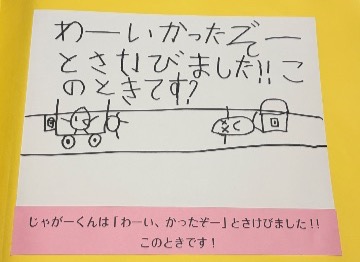 わーいかったぞー
とさけびました!!こ
のときてす?
じゃがーくんは「わーい、かったぞー」とさけびました!!
このときです!